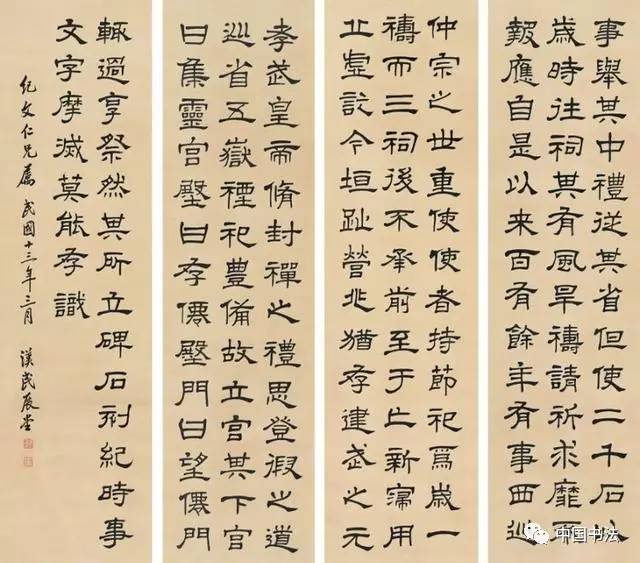 事舉其中禮從其省但使二千石以
歲時往祠其有風旱禱請祈求靡不
報應自是以来百有餘年有事西巡
仲宗之世重使使者持節祀焉歲一
禱而三祠後不承前至于亡新寖用
丘虛訖今垣趾營兆猶存建武之元
孝武皇帝脩封禪之禮思登徦之道
巡省五嶽禋祀豊備故立宮其下宮
曰集靈宮壂曰存僊壂門曰望僊門
輒過享祭然其所立碑石刻紀時事
文字摩滅莫能存識
紀文仁兄屬 民國十三年三月 漢民展堂
中国书法